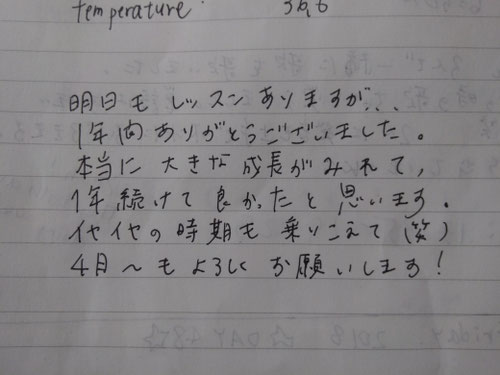 temperature 36.6
明日も レッスンありますが...
1年間ありがとうございました。
本当に 大きな 成長がみれて,
1年 続けて 良かったと 思います.
イヤイヤの時期も 乗りこえて (笑)
4月〜も よろしく お願いします!